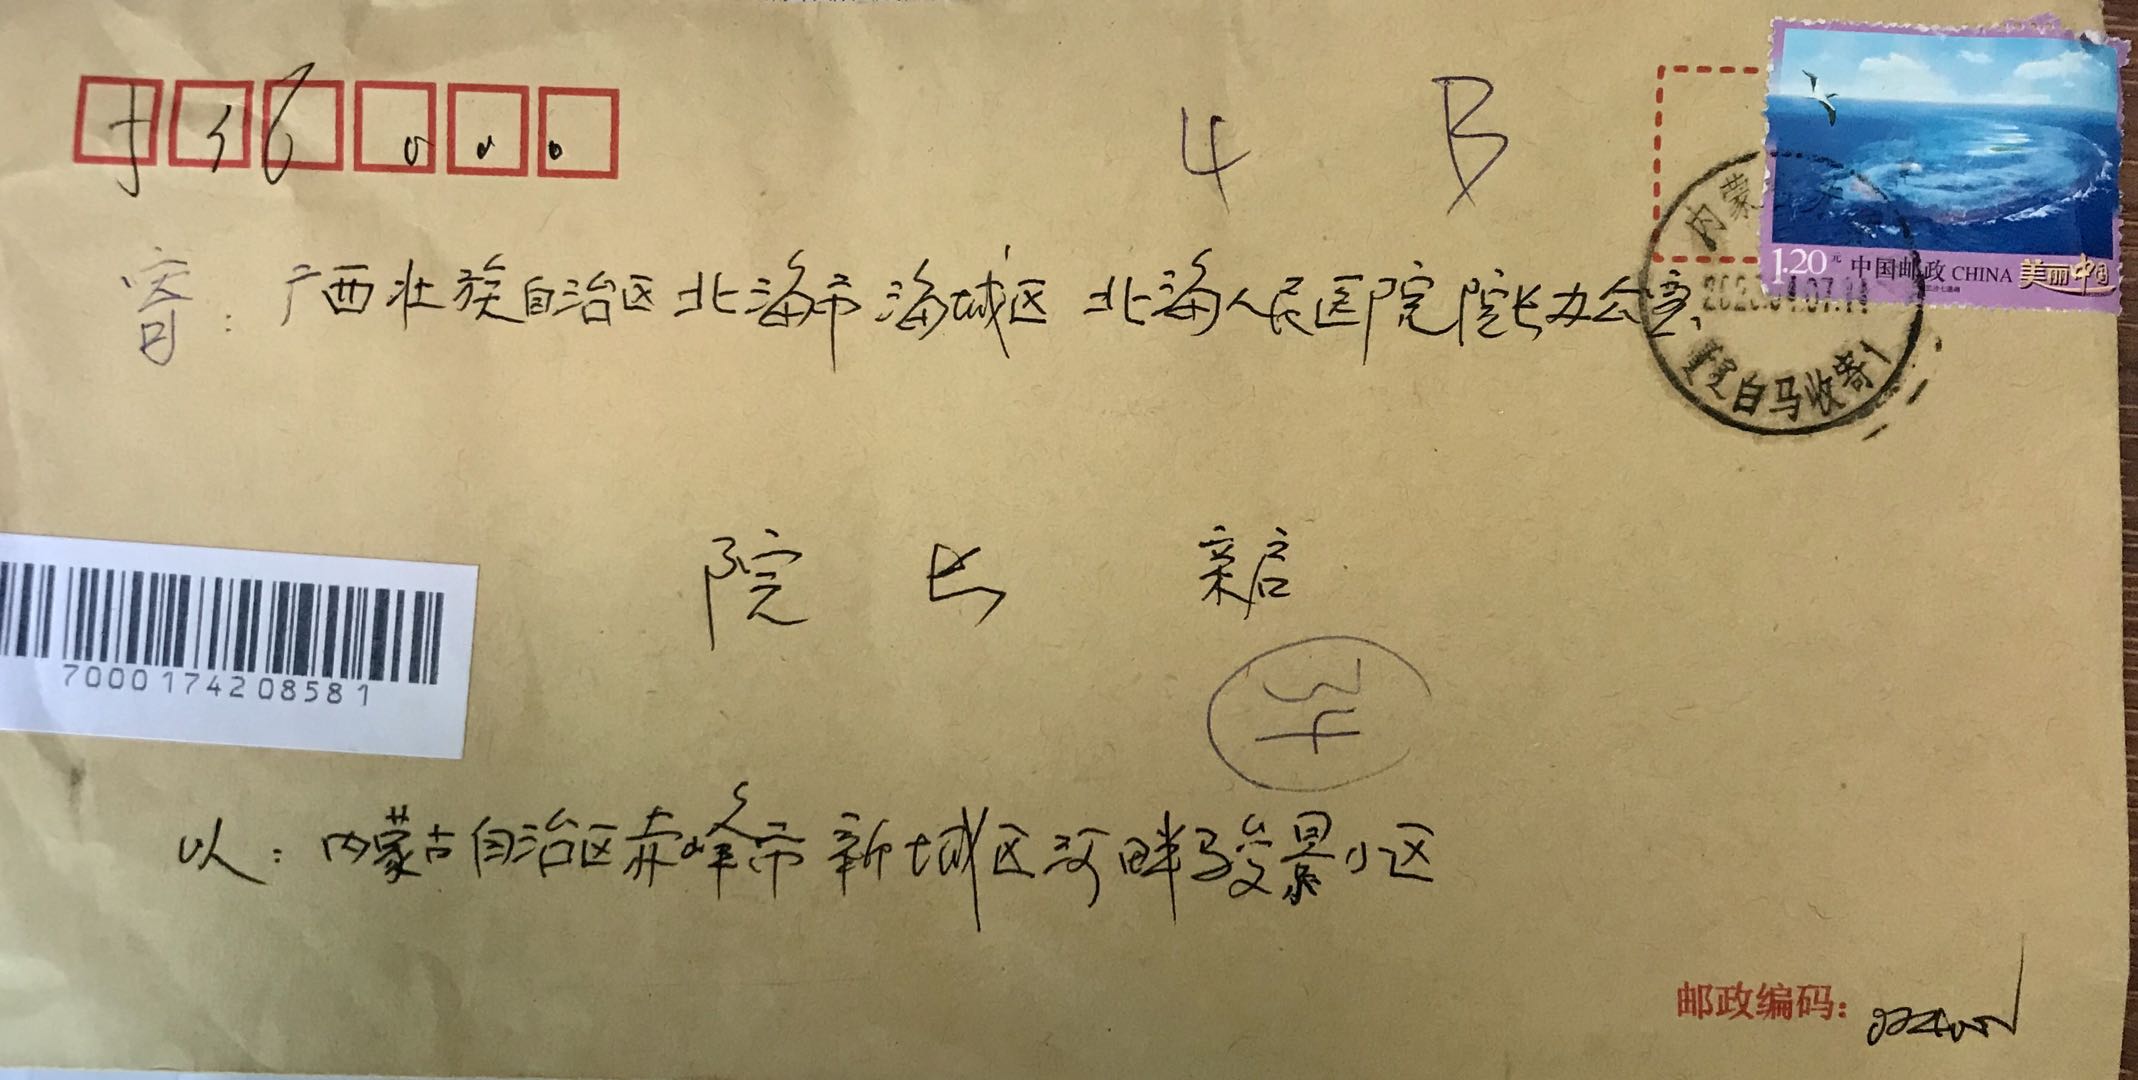 536000
4 B
寄：广西壮族自治区北海市海城区 北海人民医院院长办公室
1.20元 中国邮政 CHINA 美丽中国
内蒙
2020.04.07.11
白马收寄1
院长 亲启
7000174208581
以：内蒙古自治区赤峰市新城区河畔骏景小区
邮政编码：